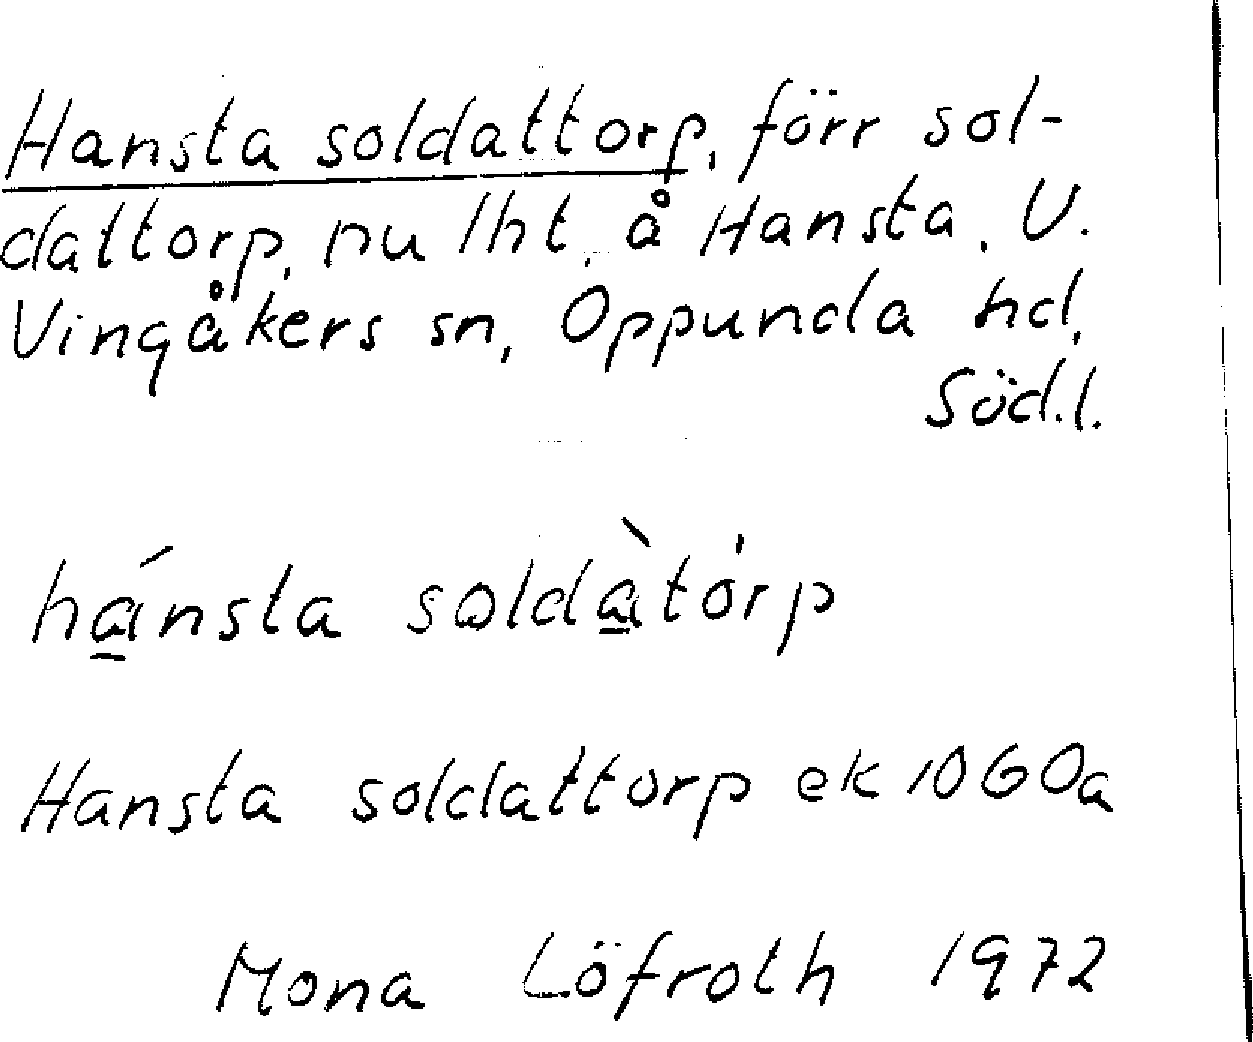 Hansta soldattorp, förr sol-
dattorp, nu lht, å Hansta, V.
Vingåkers sn, Oppunda hd,
Söd.l.
há̱nsta soldà̱tórp
Hansta soldattorp ek 10G0a
Mona Löfroth 1972